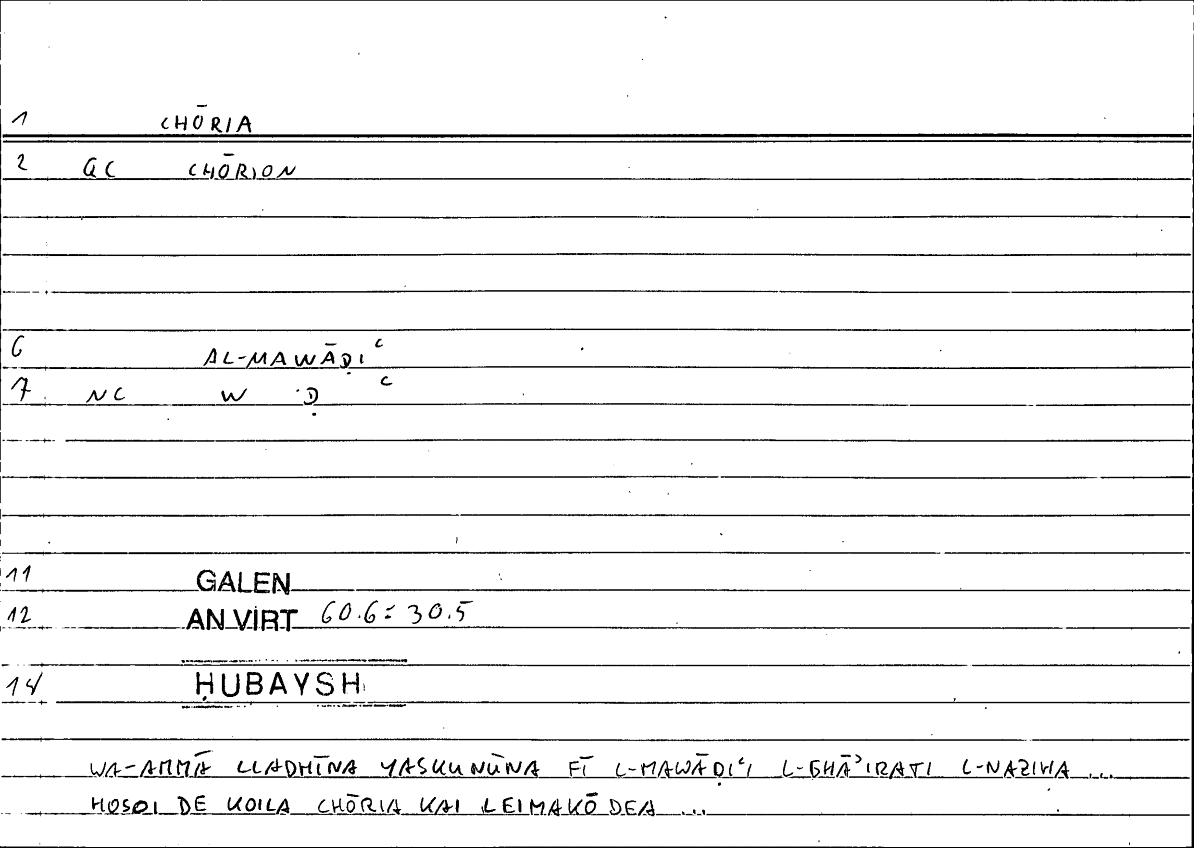 1 CHŌRIA
2 GC CHŌRION
6 AL-MAWĀḌIʿ
7 NC W Ḍ ʿ
11 GALEN
12 AN VIRT 60.6 : 30.5
14 ḤUBAYSH
WA-AMMĀ LLADHĪNA YASKUNŪNA FĪ L-MAWĀḌIʿI L-GHĀʾIRATI L-NAZIHA ...
HOSOI DE KOILA CHŌRIA KAI LEIMAKŌDEA ...